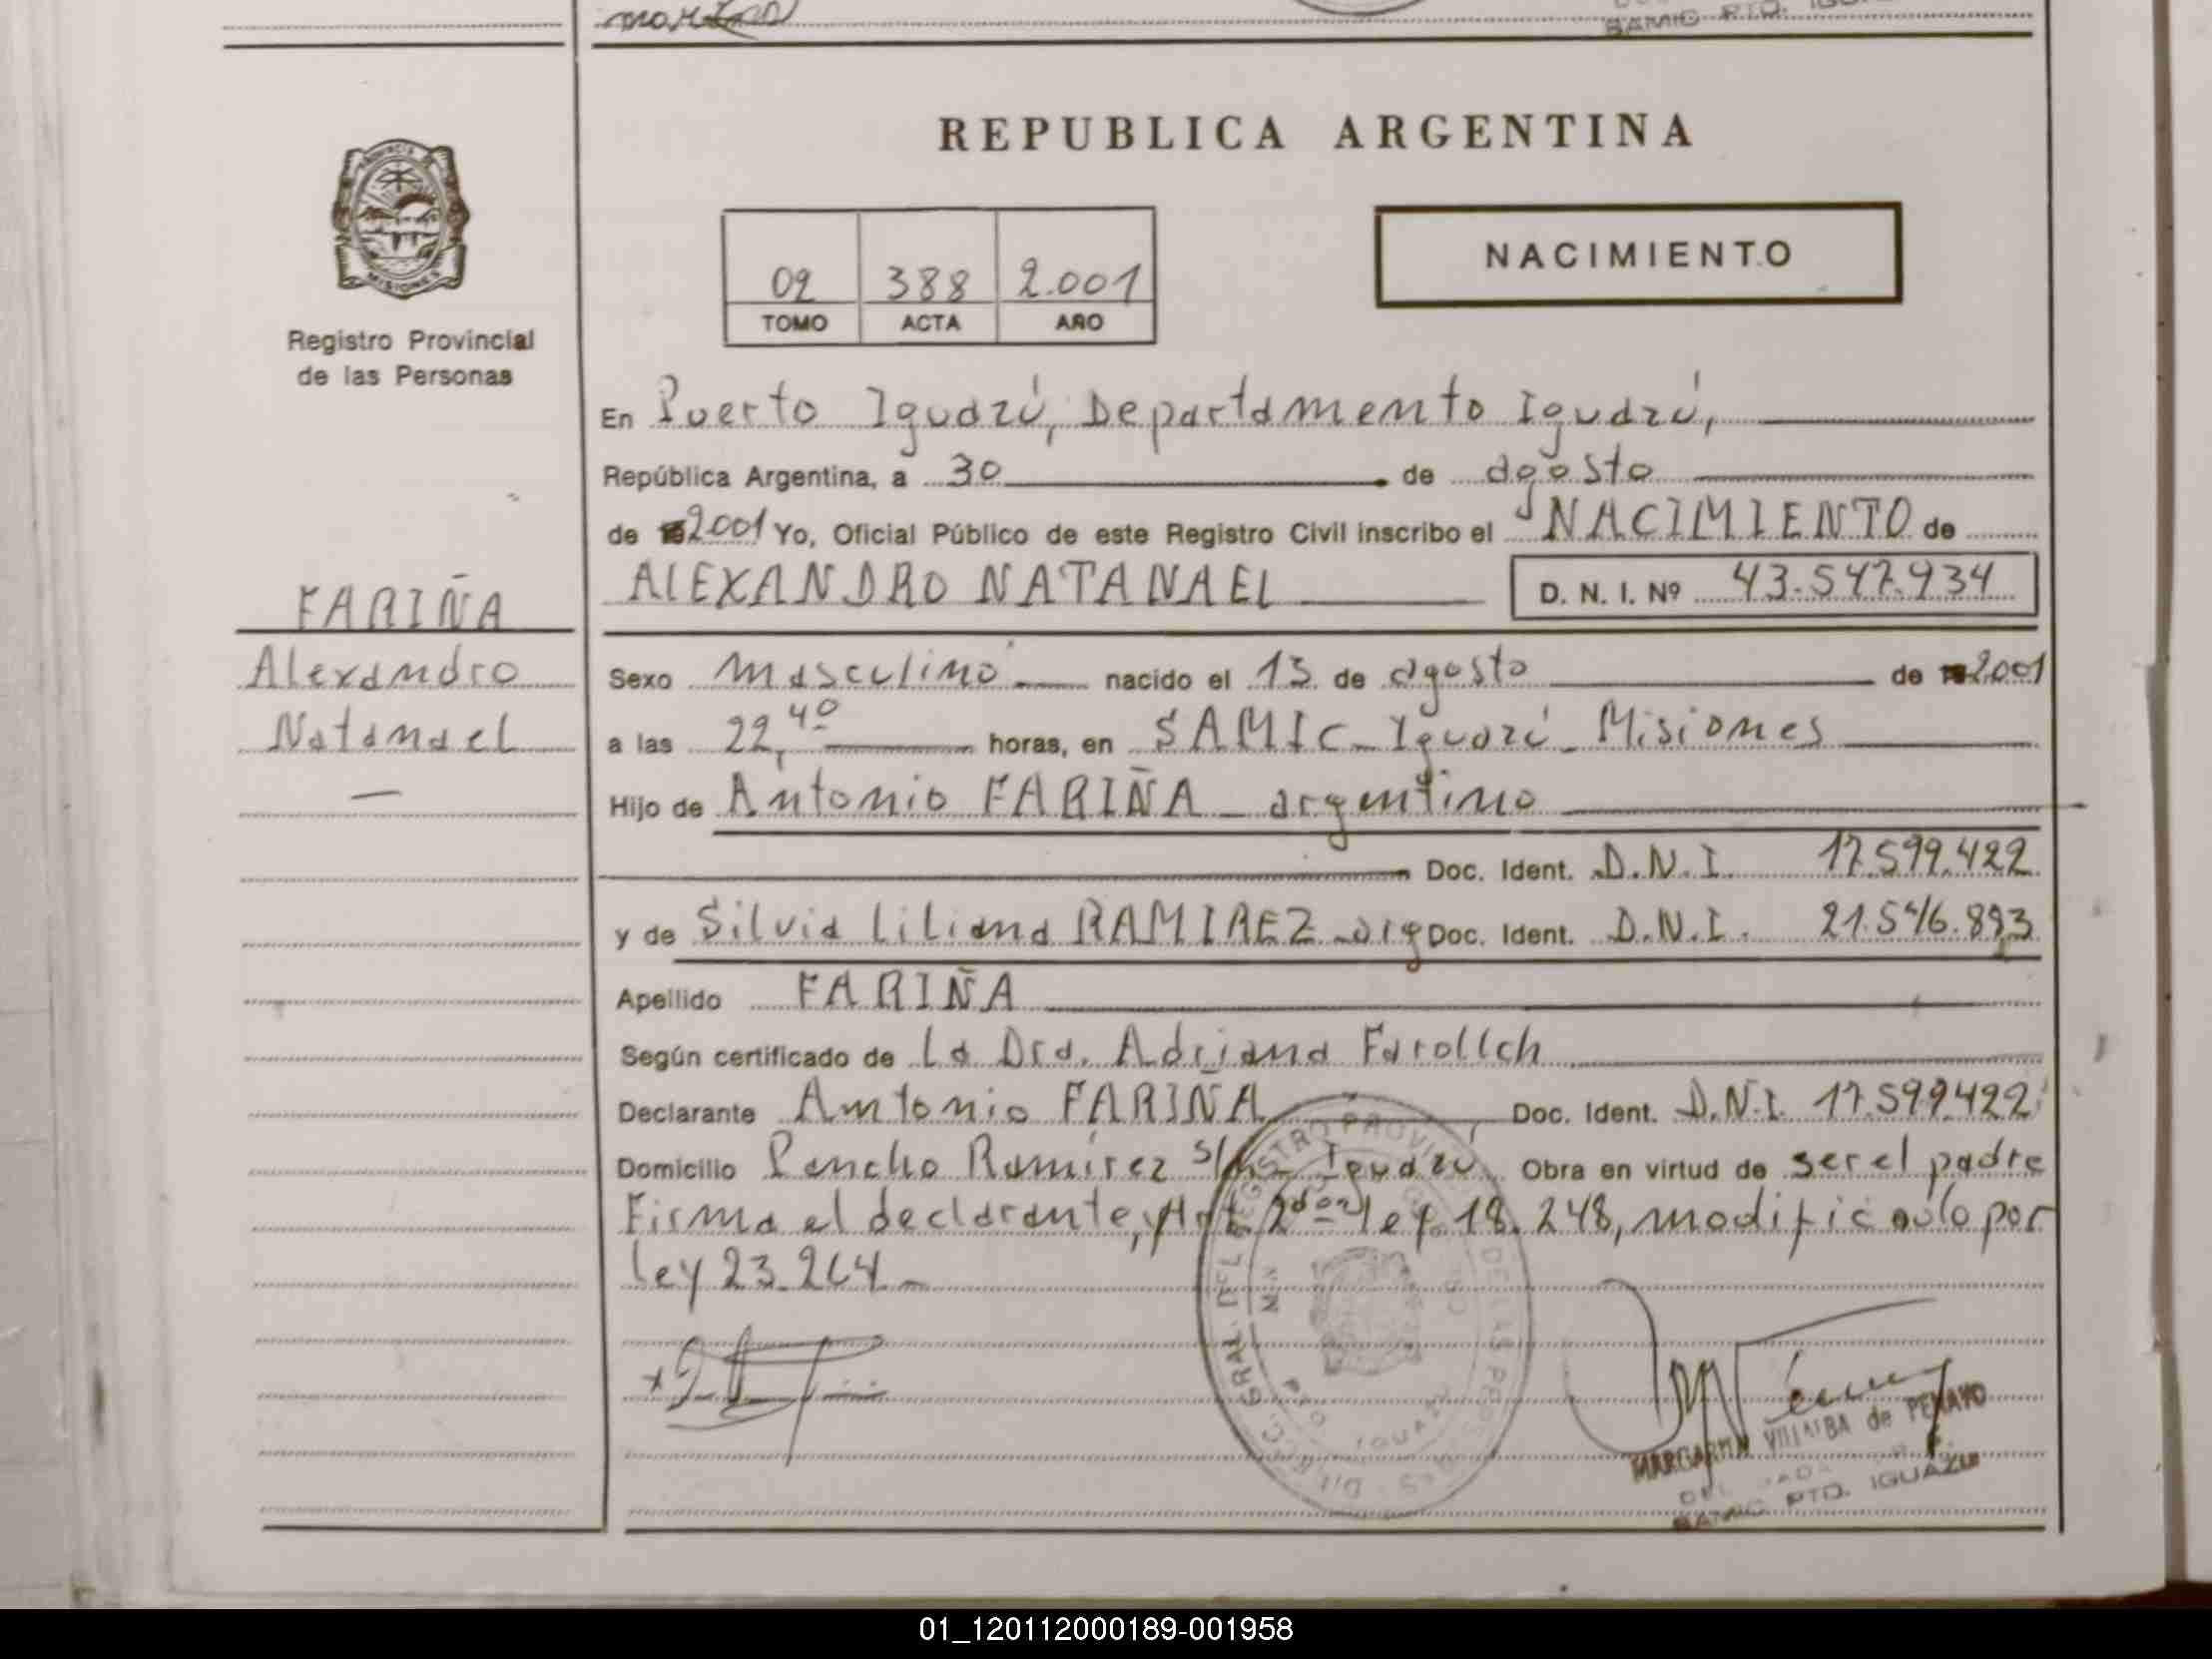 SAMIC PTO. IGUAZU
REPUBLICA ARGENTINA
PROVINCIA DE
MISIONES
Registro Provincial
de las Personas
NACIMIENTO
02 388 2.001
TOMO ACTA AÑO
En Puerto Iguazú, Departamento Iguazú,
República Argentina, a 30 de agosto
de 2001 Yo, Oficial Público de este Registro Civil inscribo el NACIMIENTO de
FARIÑA
Alexandro
Natanael
ALEXANDRO NATANAEL D. N. I. Nº 43.547.934
Sexo masculino nacido el 13 de agosto de 2001
a las 22,40 horas, en SAMIC - Iguazú - Misiones
Hijo de Antonio FARIÑA - argentino
Doc. Ident. D.N.I. 17.599.422
y de Silvia Liliana RAMIREZ - arg Doc. Ident. D.N.I. 21.546.893
Apellido FARIÑA
Según certificado de La Dra. Adriana Farollch
Declarante Antonio FARIÑA Doc. Ident. D.N.I. 17.599.422
Domicilio Pancho Ramírez s/n - Iguazú Obra en virtud de ser el padre
Firma el declarante, Art. 2do ley 18.248, modificado por
ley 23.264 -
MARGARITA VILLALBA de PENAYO
SAMIC PTO. IGUAZU
01_120112000189-001958